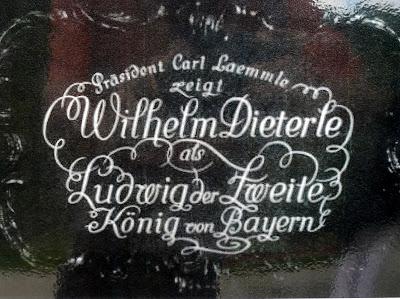 Präsident Carl Laemmle
zeigt
Wilhelm Dieterle
als
Ludwig der Zweite
König von Bayern